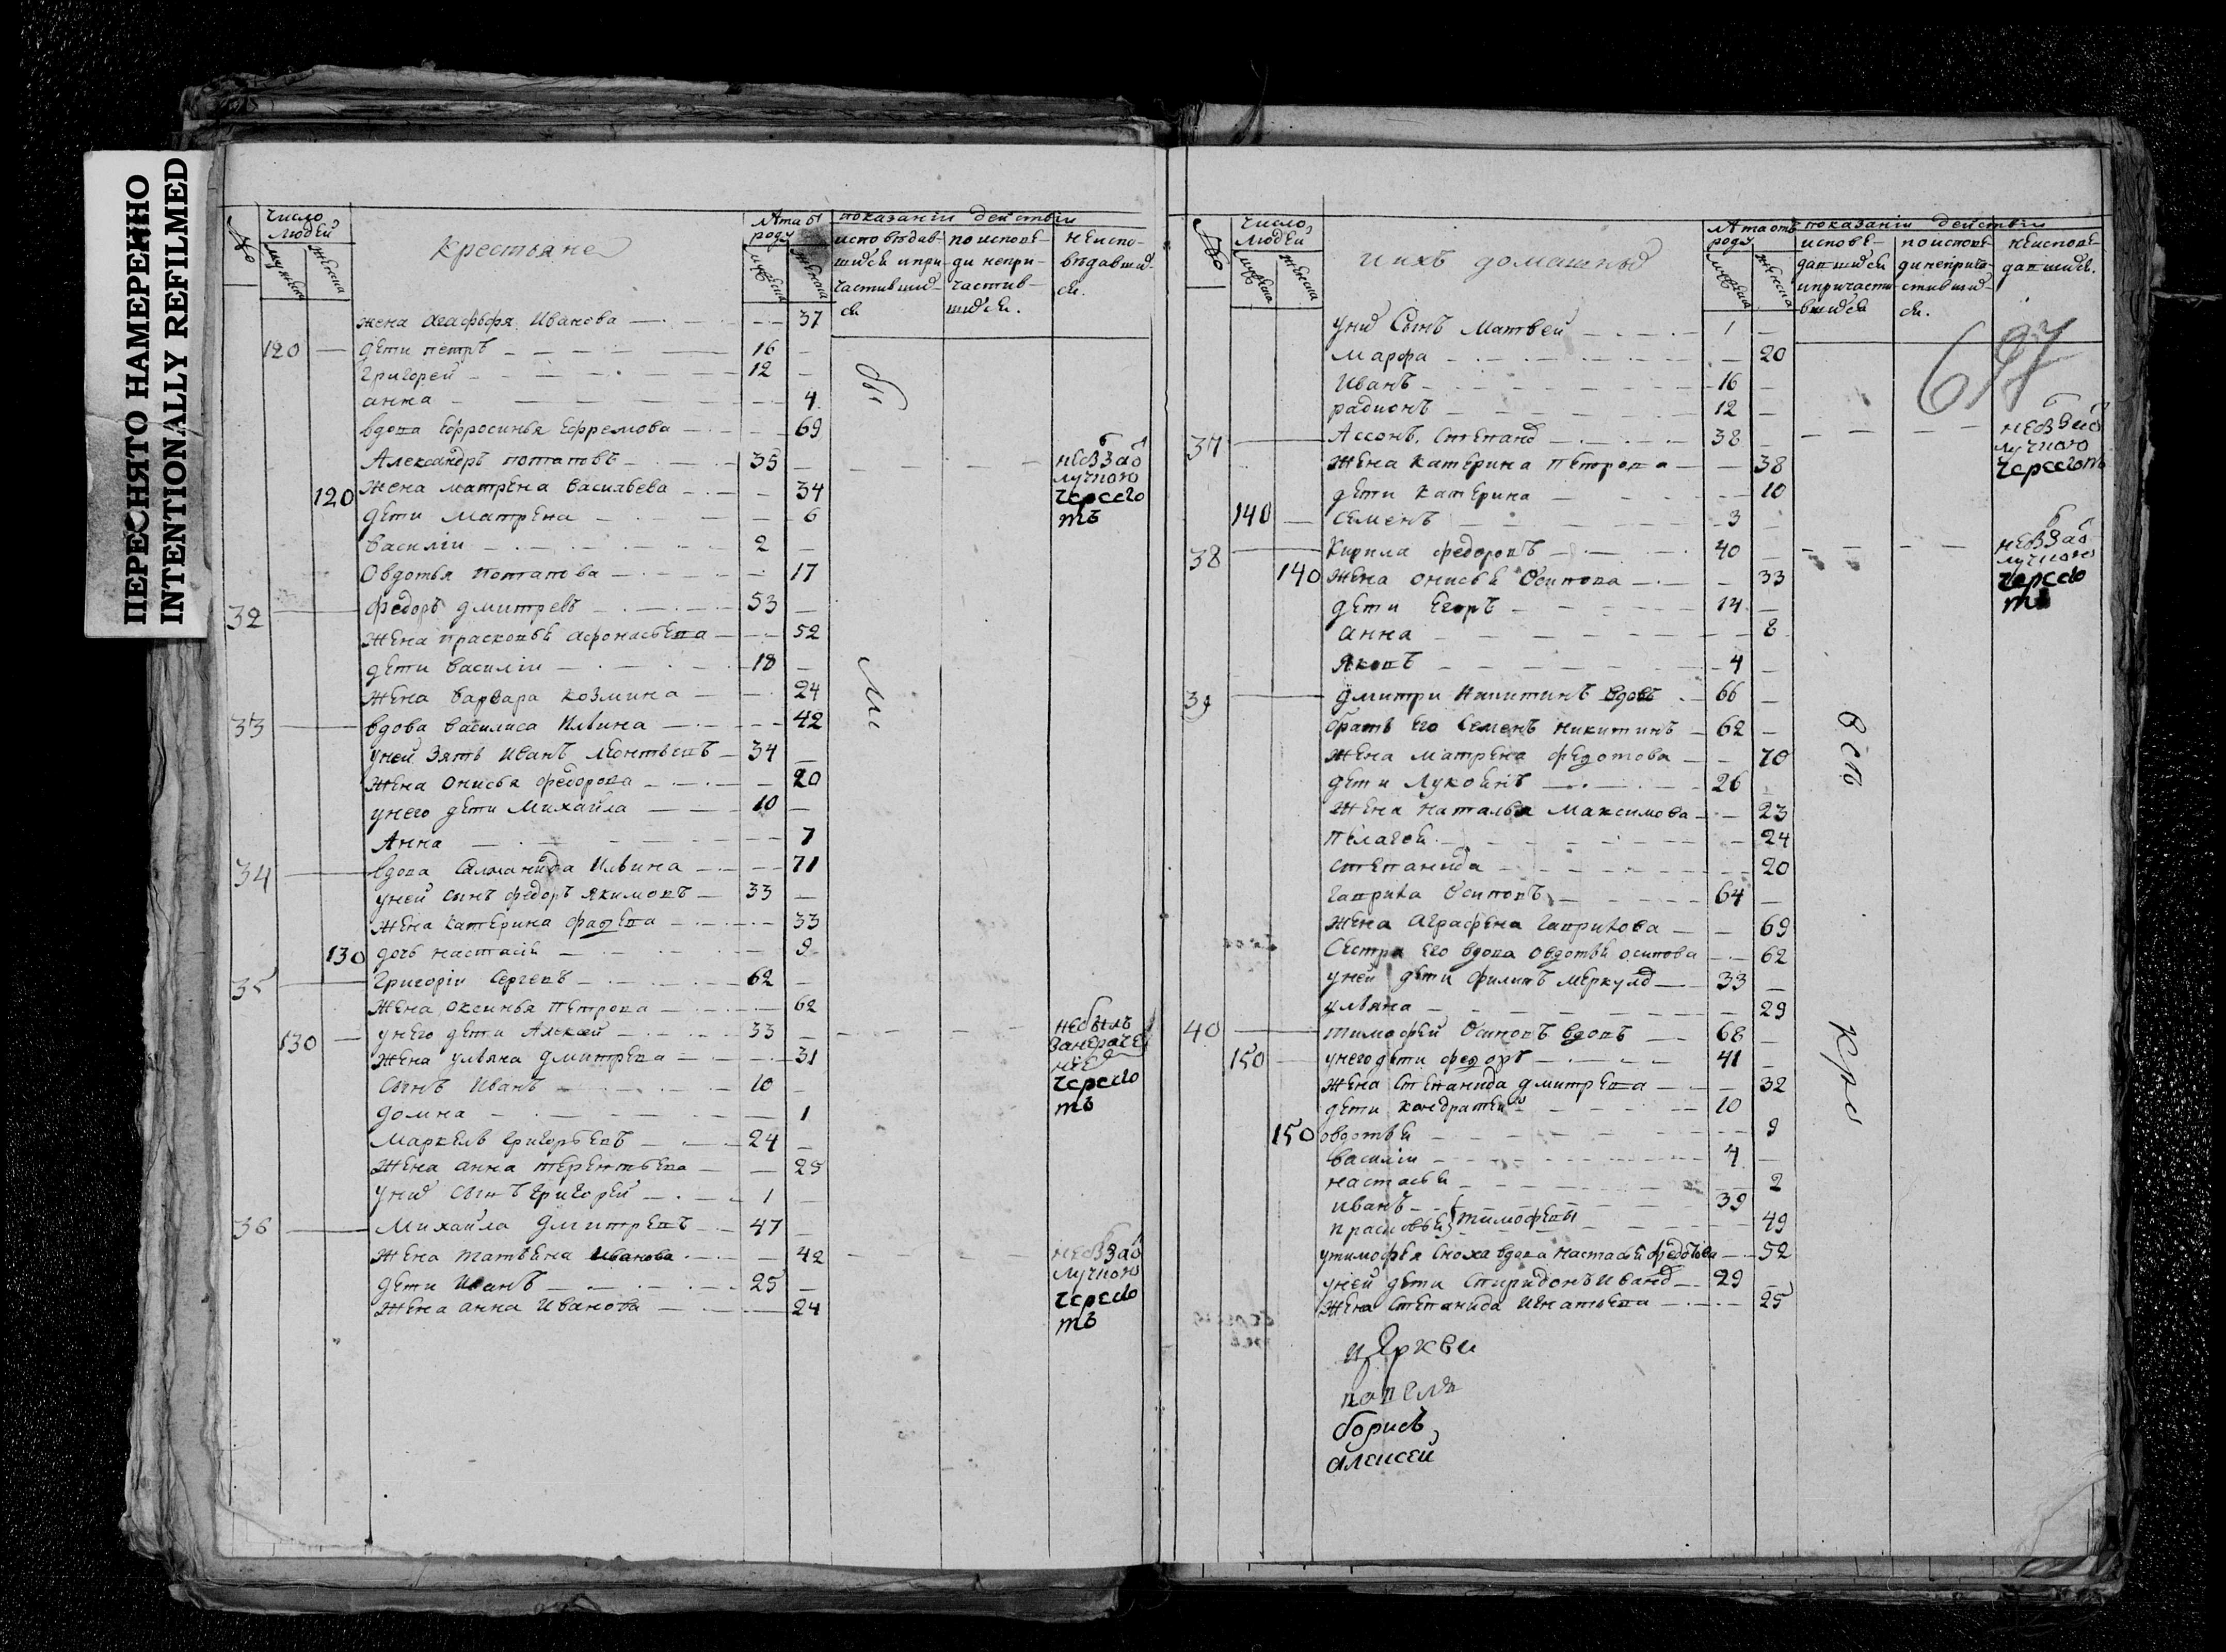 ПЕРЕСНЯТО НАМЕРЕННО
INTENTIONALLY REFILMED
№
число людей
мужеска
женска
Крестьяне
Лета от роду
мужеска
женска
показаніи действъ
исповѣдавшихся и причастившихся
по исповеди непричастившихся
неисповѣдавшихся
жена Агафья Иванова 37
120 дети петръ 16
Григореи 12
анна 4
вдова Ефросинья Ефремова 69
Александръ потаповъ 35
120 жена матрена васильева 34
дети Матрена 6
василіи 2
Овдотья потапова 17
32 федоръ дмитревъ 53
жена прасковья афонасьева 52
дети василіи 18
жена варвара козмина 24
33 вдова василиса Ильина 42
у ней зять иванъ леонтьевъ 34
жена онисья федорова 20
у него дети Михаила 10
Анна 7
34 вдова Саломанида Ильина 71
у ней сынъ федоръ якимовъ 33
жена катерина фадеева 33
130 дочь настасія 9
35 Григоріи Сергеевъ 62
жена оксинья петрова 62
130 у него дети Алексеи 33
жена ульяна дмитрева 31
сынъ Иванъ 10
домна 1
Маркелъ Григорьевъ 24
жена анна терентьева 25
у них сынъ григореи 1
36 Михаила дмитревъ 47
жена татьяна иванова 42
дети Иванъ 25
жена анна Иванова 24
№
число людей
мужеска
женска
и ихъ домашних
Лета отъ роду
мужеска
женска
показаніи действъ
исповедавшихся и причастившихся
по исповеди непричастившихся
неисповедавшихся
697
у них Сынъ Матвеи 1
марфа 20
Иванъ 16
радионъ 12
37 Ассонъ Степанов 38
жена катерина петрова 38
дети катерина 10
140 семенъ 3
38 Кирила федоровъ 40
140 жена онисья Осипова 33
дети Егоръ 14
анна 8
яковъ 4
39 дмитри никитинъ вдовъ 66
братъ его семенъ никитинъ 62
жена матрена федотова 70
дети Лукоянъ 26
жена наталья Максимова 23
пелагея 24
степанида 20
гаврила осиповъ 64
жена аграфена гаврилова 69
сестра его вдова овдотья осипова 62
у ней дети филипъ меркулов 33
ульяна 29
40 тимофеи Осиповъ вдовъ 68
150 у него дети федоръ 41
жена степанида дмитрева 32
дети кондратеи 10
150 овдотья 9
василіи 4
настасья 2
иванъ 39
прасковья тимофевы 49
у тимофея сноха вдова настасья федотова 52
у ней дети спиридонъ иванов 29
жена степанида игнатьева 25
церкви
павелъ
борисъ
алексеи